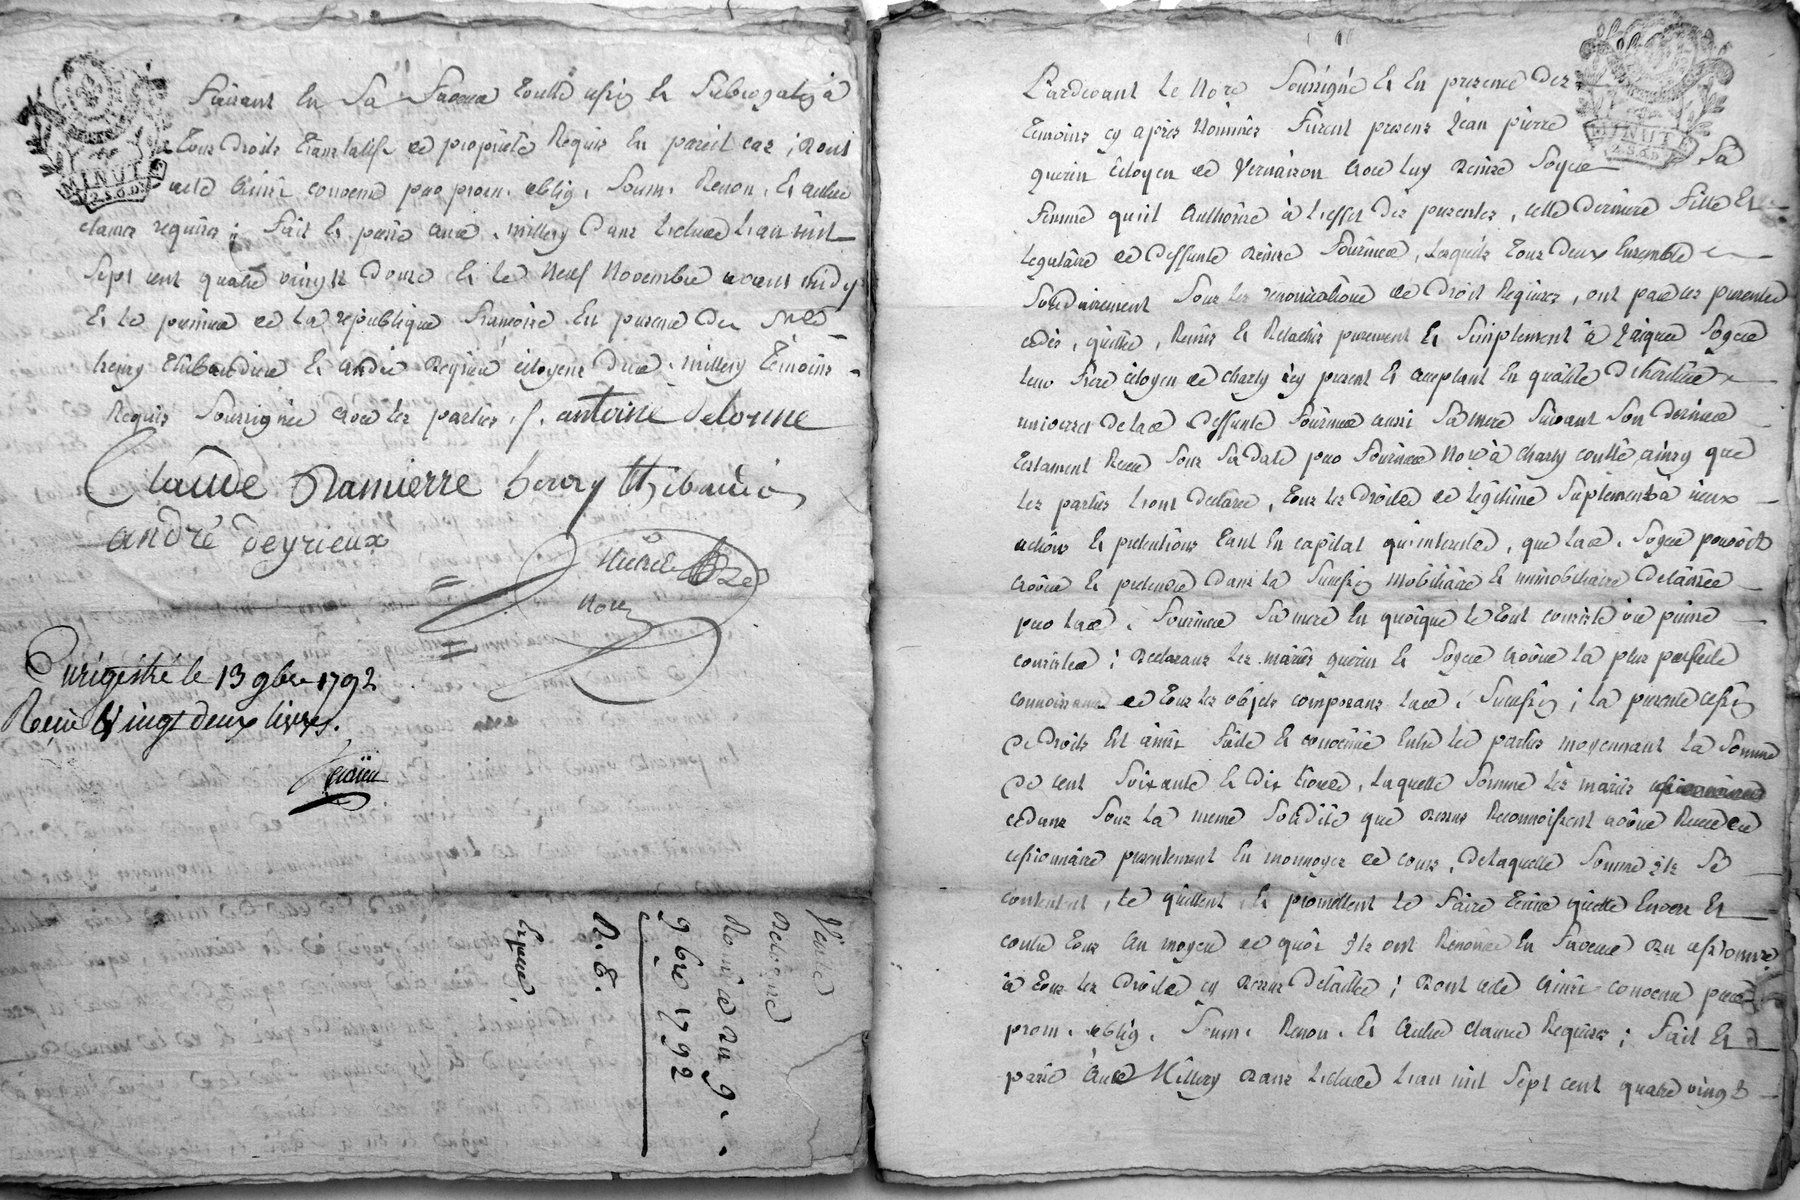 faisant en sa faveur toutte cession et subrogation à
tous droits translatifs de propriété requis en pareil cas ; dont
acte ainsi convenu par prom. oblig. soum. renon. et autres
clauses requises ; fait et passé aud. millery dans l'étude l'an mil
sept cent quatre vingt douze et le neuf novembre avant midy
et le premier de la république françoise en presence de
henry thibaudier et andré deyrieu citoyens dud. millery témoins
requis soussignés avec les parties. f. antoine delorme
Claude Ramierre henry thibaudier
andré deyrieux
nore
Enrigistré le 13 9bre 1792
Reçu vingt deux livres.
MINUT
2.S.6.D
Vente
Delorme
Ramier du 9.
9bre 1792
N. E.
Expédié.
Pardevant le Nore soussigné et en presence des
témoins cy après nommés furent presens Jean pierre
querin citoyen de Vernaison avec luy                     sa
femme qu'il authorise à l'effet des presentes, cette dernière fille et
légataire de deffunte            fourneau, lesquels tous deux ensemble
solidairement sous les renonciations de droit requises, ont par ces presentes
cédés, quitté, remis et relachés purement et simplement à
leur frere citoyen de charly icy present et acceptant en qualité d'héritier
universel de lad. deffunte            aussi sa mere suivant son dernier
testament reçu sous sa date par            Nore à charly                que
les parties l'ont declaré, tous les droits de légitime suplement à iceux
actions et pretentions tant en capital qu'interets, que lad.            pouvoit
avoir et pretendre dans la succession mobiliaire et immobiliaire delaissée
par lad.            sa mere en quoique le tout consiste ou puisse
consister ; declarans les mariés querin et            avoir la plus parfaite
connoissance de tous les objets composans lad. succession ; la presente cession
de droits est ainsi faite et convenue entre les parties moyennant la somme
de cent soixante et dix livres, laquelle somme les mariés
cedans sous la meme solidité que dessus reconnoissent avoir reçue du
cessionnaire presentement en monnoyes de cours, de laquelle somme ils se
contentent, le quittent et promettent le faire tenir quitte envers et
contre tous au moyen de quoi ils ont renoncé en faveur du cessionnre
à tous les droits cy dessus détaillés ; dont acte ainsi convenu par
prom. oblig. soum. renon. et autres clauses requises ; fait et
passé aud. Millery dans l'étude l'an mil sept cent quatre vingt
MINUT
2.S.6.D